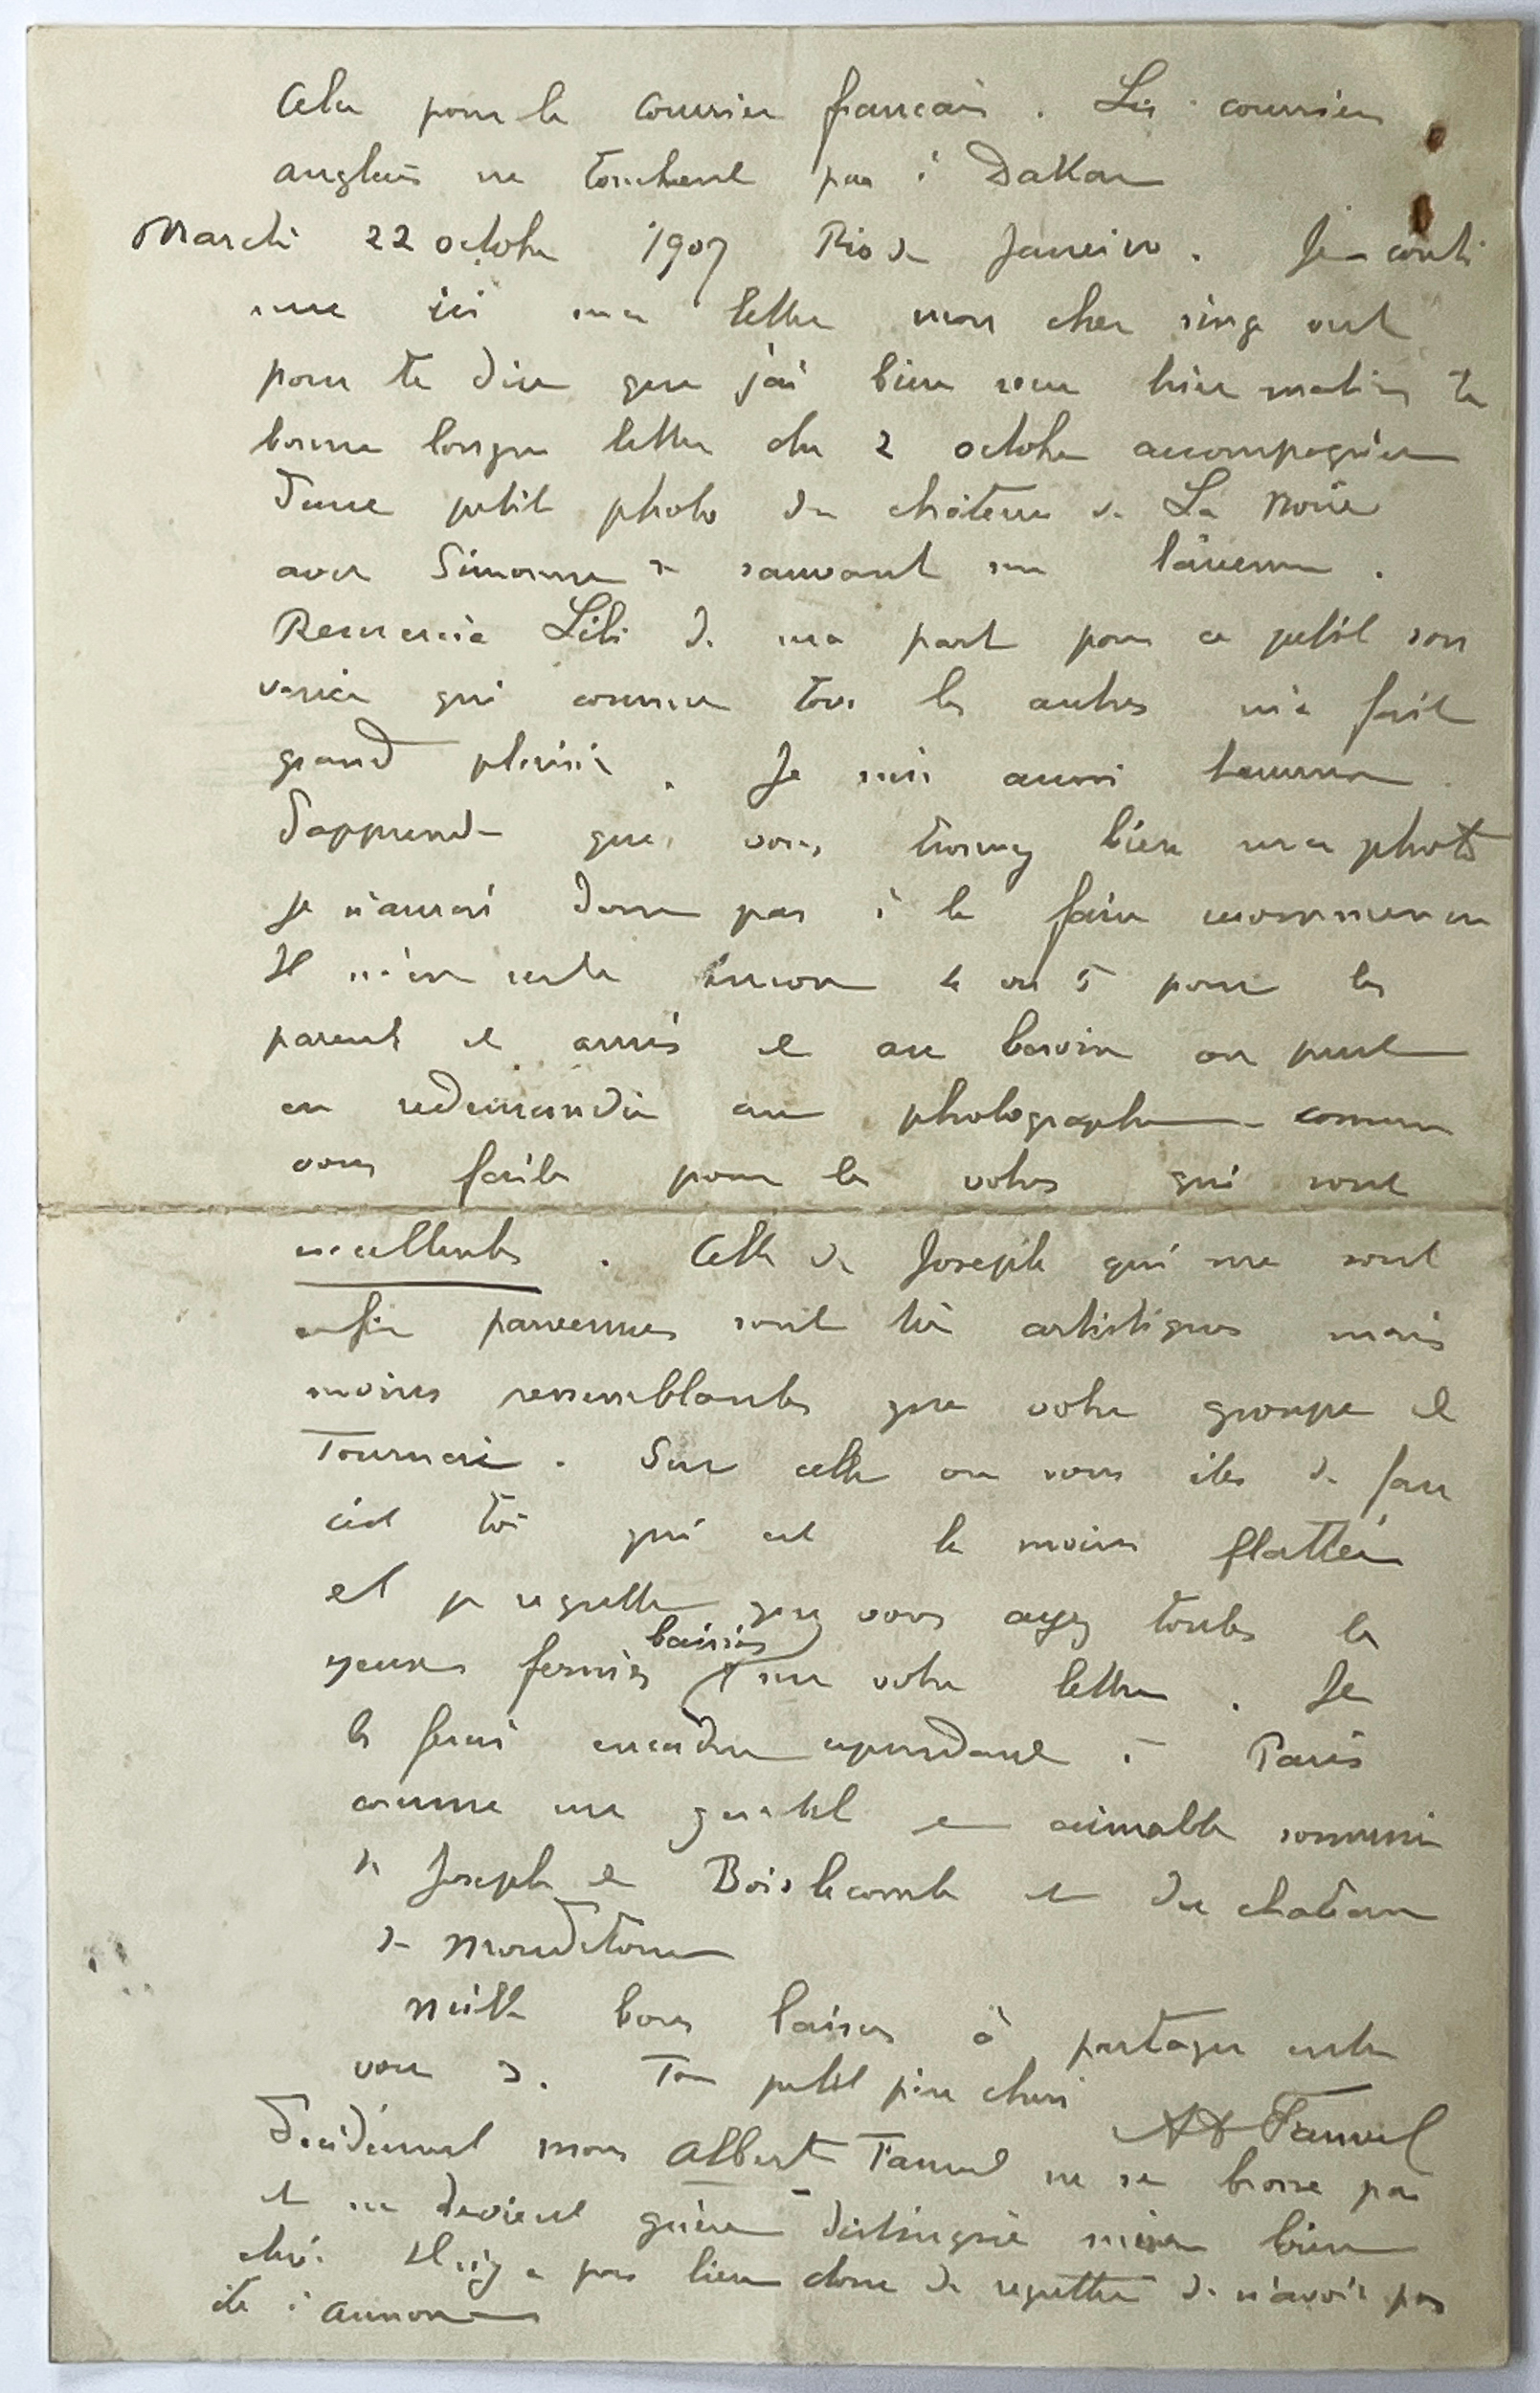 Cela pour le courrier français. Les courriers
anglais ne touchent pas à Dakar
Mardi 22 octobre 1907 Rio de Janeiro. Je conti
nue ici ma lettre mon cher singe vert
pour te dire que j'ai bien reçu hier matin ta
bonne longue lettre du 2 octobre accompagnée
d'une petite photo du château de La Noue
avec Simonne se sauvant sur l'avenue.
Remercie Lili de ma part pour ce petit sou
venir qui comme tous les autres m'a fait
grand plaisir. Je suis aussi heureux
d'apprendre que vous trouvez bien ma photo
je n'aurai donc pas à le faire recommencer
Il m'en reste encore 4 ou 5 pour les
parents et amis et au besoin on peut
en redemander au photographe comme
vous faites pour les votres qui sont
excellentes. Celles de Joseph qui me sont
enfin parvenues sont très artistiques mais
moins ressemblantes que votre groupe et
Tournerie. Sur celle ou vous êtes de face
c'est toi qui est la moins flattée
et je regrette que vous ayez toutes les
baissés
yeux fermés sur votre lettre. Je
les ferai encadrer cependant à Paris
comme un gentil et aimable souvenir
de Joseph de Boislecomte et du chateau
de Mondétour
Mille bons baisers à partager entre
vous 3. Ton petit père cheri
AD Fauvel
Décidément mon Albert Fauvel ne se brosse pas
et ne devient guère distingué même bien
Il n'y a pas lieu donc de regretter de n'avoir pas
été à